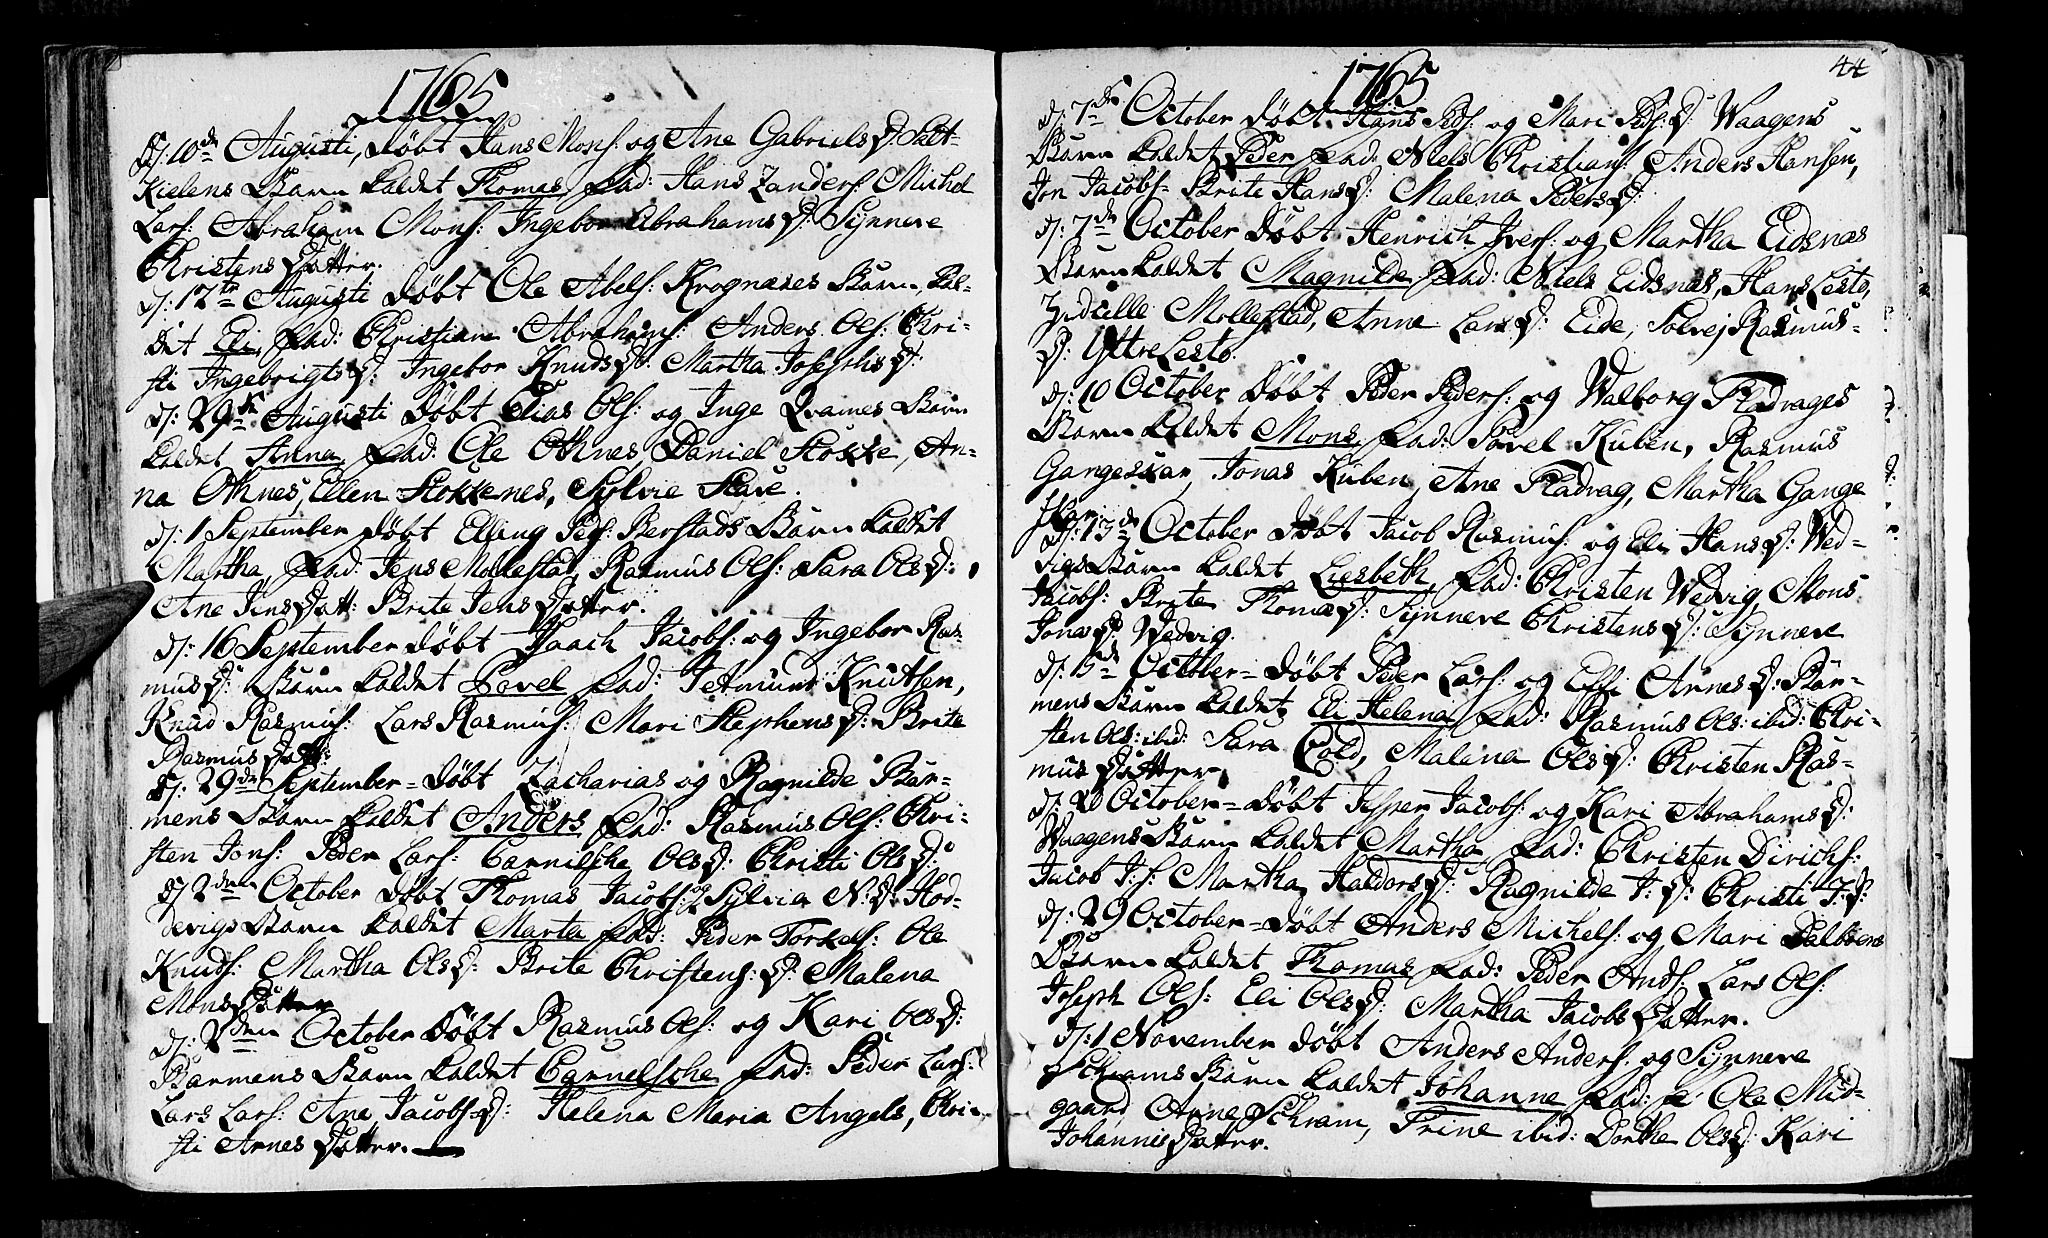 1765
D: 10de Augusti, døbt Hans Mons: og Ane Gabriels D: Salt-
Kielens Barn kaldet Thomas, fad: Hans Zanders: Michel
Lars: Abraham Mons: Ingebor Abrahams D: Synneve
Christens Datter.
D: 17te Augusti døbt Ole Abels: Krognæses Barn, kal-
det Eli, fad: Christian Abrahams: Anders Ols: Chri-
sti Ingebrigts D: Ingebor Knuds D: Martha Josephs D:
D: 29de Augusti døbt Elias Ols: og Inge Qvames Barn
kaldet Anna, fad: Ole Othnes, Daniel Stokke, An-
na Othnes, Ellen Stokkenes, Sylvie
D: 1 September døbt Elling Ped: Berstads Barn kaldet
Martha, fad: Jens Mollestad, Rasmus Ols: Sara Ols D:
Ane Jens Datt: Brite Jens Datter.
D: 16 September døbt Isaach Jacobs: og Ingebor Ras-
mus D: Barn kaldet Povel fad: Jetmund Knutsen,
Knud Rasmus: Lars Rasmus: Mari Stephens D: Brite
Rasmus Datt:
D: 29de September - døbt Zacharias og Ragnilde Bar-
mens Barn kaldet Anders fad: Rasmus Ols: Chri-
sten Jons: Peder Lars: Carnilsche Ols D: Christi Ols D:
D: 2den October døbt Thomas Jacobs: og Sylvia N: D: Hod-
devigs Barn kaldet Marta fad: Peder Torkels: Ole
Knuds: Martha Ols D: Brite Christens: D: Malena
Mons Datter
D: 2den October døbt Rasmus Ols: og Kari Ols D:
Barmens Barn kaldet Carnelsche fad: Peder Lars:
Lars Lars: Ane Jacobs D: Helena Maria Angels, Chri-
sti Arnes Datter.
44
1765
D: 7de October døbt Hans Peds: og Mari Peds: D: Waagens
Barn kaldet Peder fad: Niels Christians: Anders Hansen,
Jon Jacobs- Brite Hans D: Malena Peders D:
D: 7de October døbt Henrich Ivers: og Martha Eidsnæs
Barn kaldet Magnilde, fad: Niels Eidsnæs, Hans Lestø,
Zidselle Mollestad, Anne Lars D: Eide, Solvej Rasmus-
D: Yttre Lestø.
D: 10 October døbt Peder Peders: og Walborg Fladvages
Barn kaldet Mons, fad: Povel Kuben, Rasmus
Gangeskar, Jonas Kuben, Ane Fladvag, Martha Gange
skar.
D: 13de October døbt Jacob Rasmus: og Eli Hans D: Wed-
vigs Barn kaldet Liesbeth, fad: Christen Wedvig, Mons
Jacobs: Brite Thomæ D: Synneve Christens D: Synneve
Jonas D: Wedvig.
D: 15de October - døbt Peder Lars: og Effi Arnes D: Bar-
mens Barn kaldet, Eli Helena, fad: Rasmus Ols: ibid: Chri-
sten Ols: ibid: Sara Cold, Malena Ols D: Christen Ras-
mus Datter.
D: 20 October - døbt Jesper Jacobs: og Kari Abrahams D:
Waagens Barn kaldet Martha fad: Christen Dirichs:
Jacob J: s: Martha Haldors D: Ragnilde J: D: Christi J: D:
D: 29 October - døbt Anders Michels: og Mari Dalbens
Barn kaldet Thomas fad: Peder Ands: Lars Ols:
Joseph Ols: Eli Ols D: Martha Jacobs Datter.
D: 1 November døbt Anders Anders: og Synneve
Schrams Barn kaldet Johanne fad: Ole Mid-
gaard, Arne Schram, Trine ibid: Dorthe Ols D: Kari
Johannis Datter.